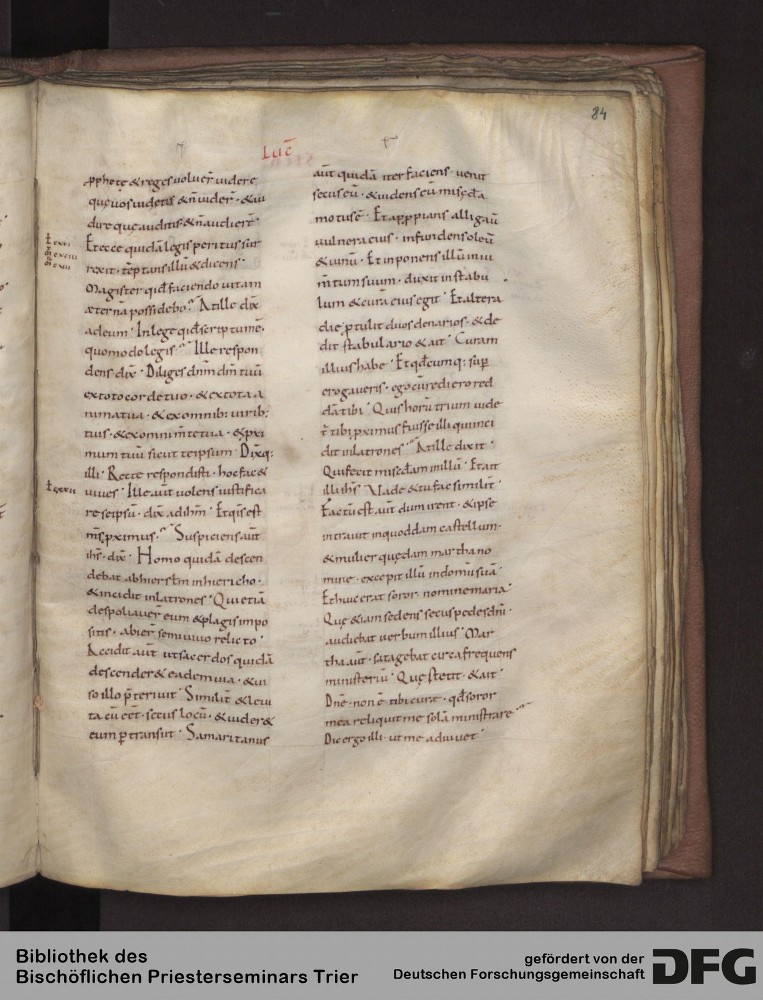 84
Luc̄
ꝓphetę & reges uoluer̄ uidere
quę uos uidetis & n̄ uider̄ · & au
dire quę auditis & n̄ audier̄ ·
Et ecce quidā legis peritus sur
rexit · tēptans illū & dicens ·
Magister quid faciendo uitam
æternā possidebo? At ille dix̄
ad eum · In lege quid scriptum ē ·
quomodo legis? Ille respon
dens dix̄ · Diliges dn̄m dm̄ tuū
ex toto corde tuo · & ex tota a
nima tua · & ex omnib; uirib;
tuis · & ex omni m̄te tua · & pxi
mum tuū sicut te ipsum · Dix̄q:
illi · Recte respondisti · hoc fac &
uiues · Ille aūt uolens iustifica
re se ipsū · dix̄ ad ihm̄ · Et quis est
m̄s pximus? Suspiciens aūt
ihs̄ · dix̄ · Homo quidā descen
debat ab hierslm̄ in hiericho ·
& incidit in latrones · Qui etiā
despoliauer̄ eum & plagis impo
sitis · abier̄ semiuiuo relicto ·
Accidit aūt ut sacerdos quidā
descender& eadem uia · & ui
so illo p̄teriuit · Similit̄ & leui
ta cū eēt · secus locū · & uider&
eum ꝑtransiit · Samaritanus
aūt quidā iter faciens · uenit
secus eū · & uidens eū misc̨dia
motus ē · Et appp̄ians alligauit
uulnera eius · infundens oleū
& uinū · Et inponens illū in iu
m̄tum suum · duxit in stabu
lum & curā eius egit · Et altera
die ꝓtulit duos denarios · & de
dit stabulario & ait · Curam
illius habe · Et qdcumq: supēr
erogaueris · ego cū rediero red
dā tibi · Quis horū trium uide
t̄ tibi pximus fuisse illi qui inci
dit in latrones? At ille dixit ·
Qui fecit misc̨dam in illū · Et ait
illi ihs̄ · Vade & tu fac similit̄ ·
Factū est aūt dum irent · & ipse
intrauit in quoddam castellum ·
& mulier quędam martha no
mine · excepit illū in domū suā ·
Et huic erat soror · nomine maria ·
Quę &iam sedens secus pedes dn̄i ·
audiebat uerbum illius · Mar
tha aūt · satagebat circa frequens
ministeriū · Quę stetit · & ait ·
Dn̄e · non ē tibi curæ · qd soror
mea reliquit me solā ministrare?
Dic ergo illi · ut me adiuuet ·
Bibliothek des
Bischöflichen Priesterseminars Trier
gefördert von der
Deutschen Forschungsgemeinschaft
DFG